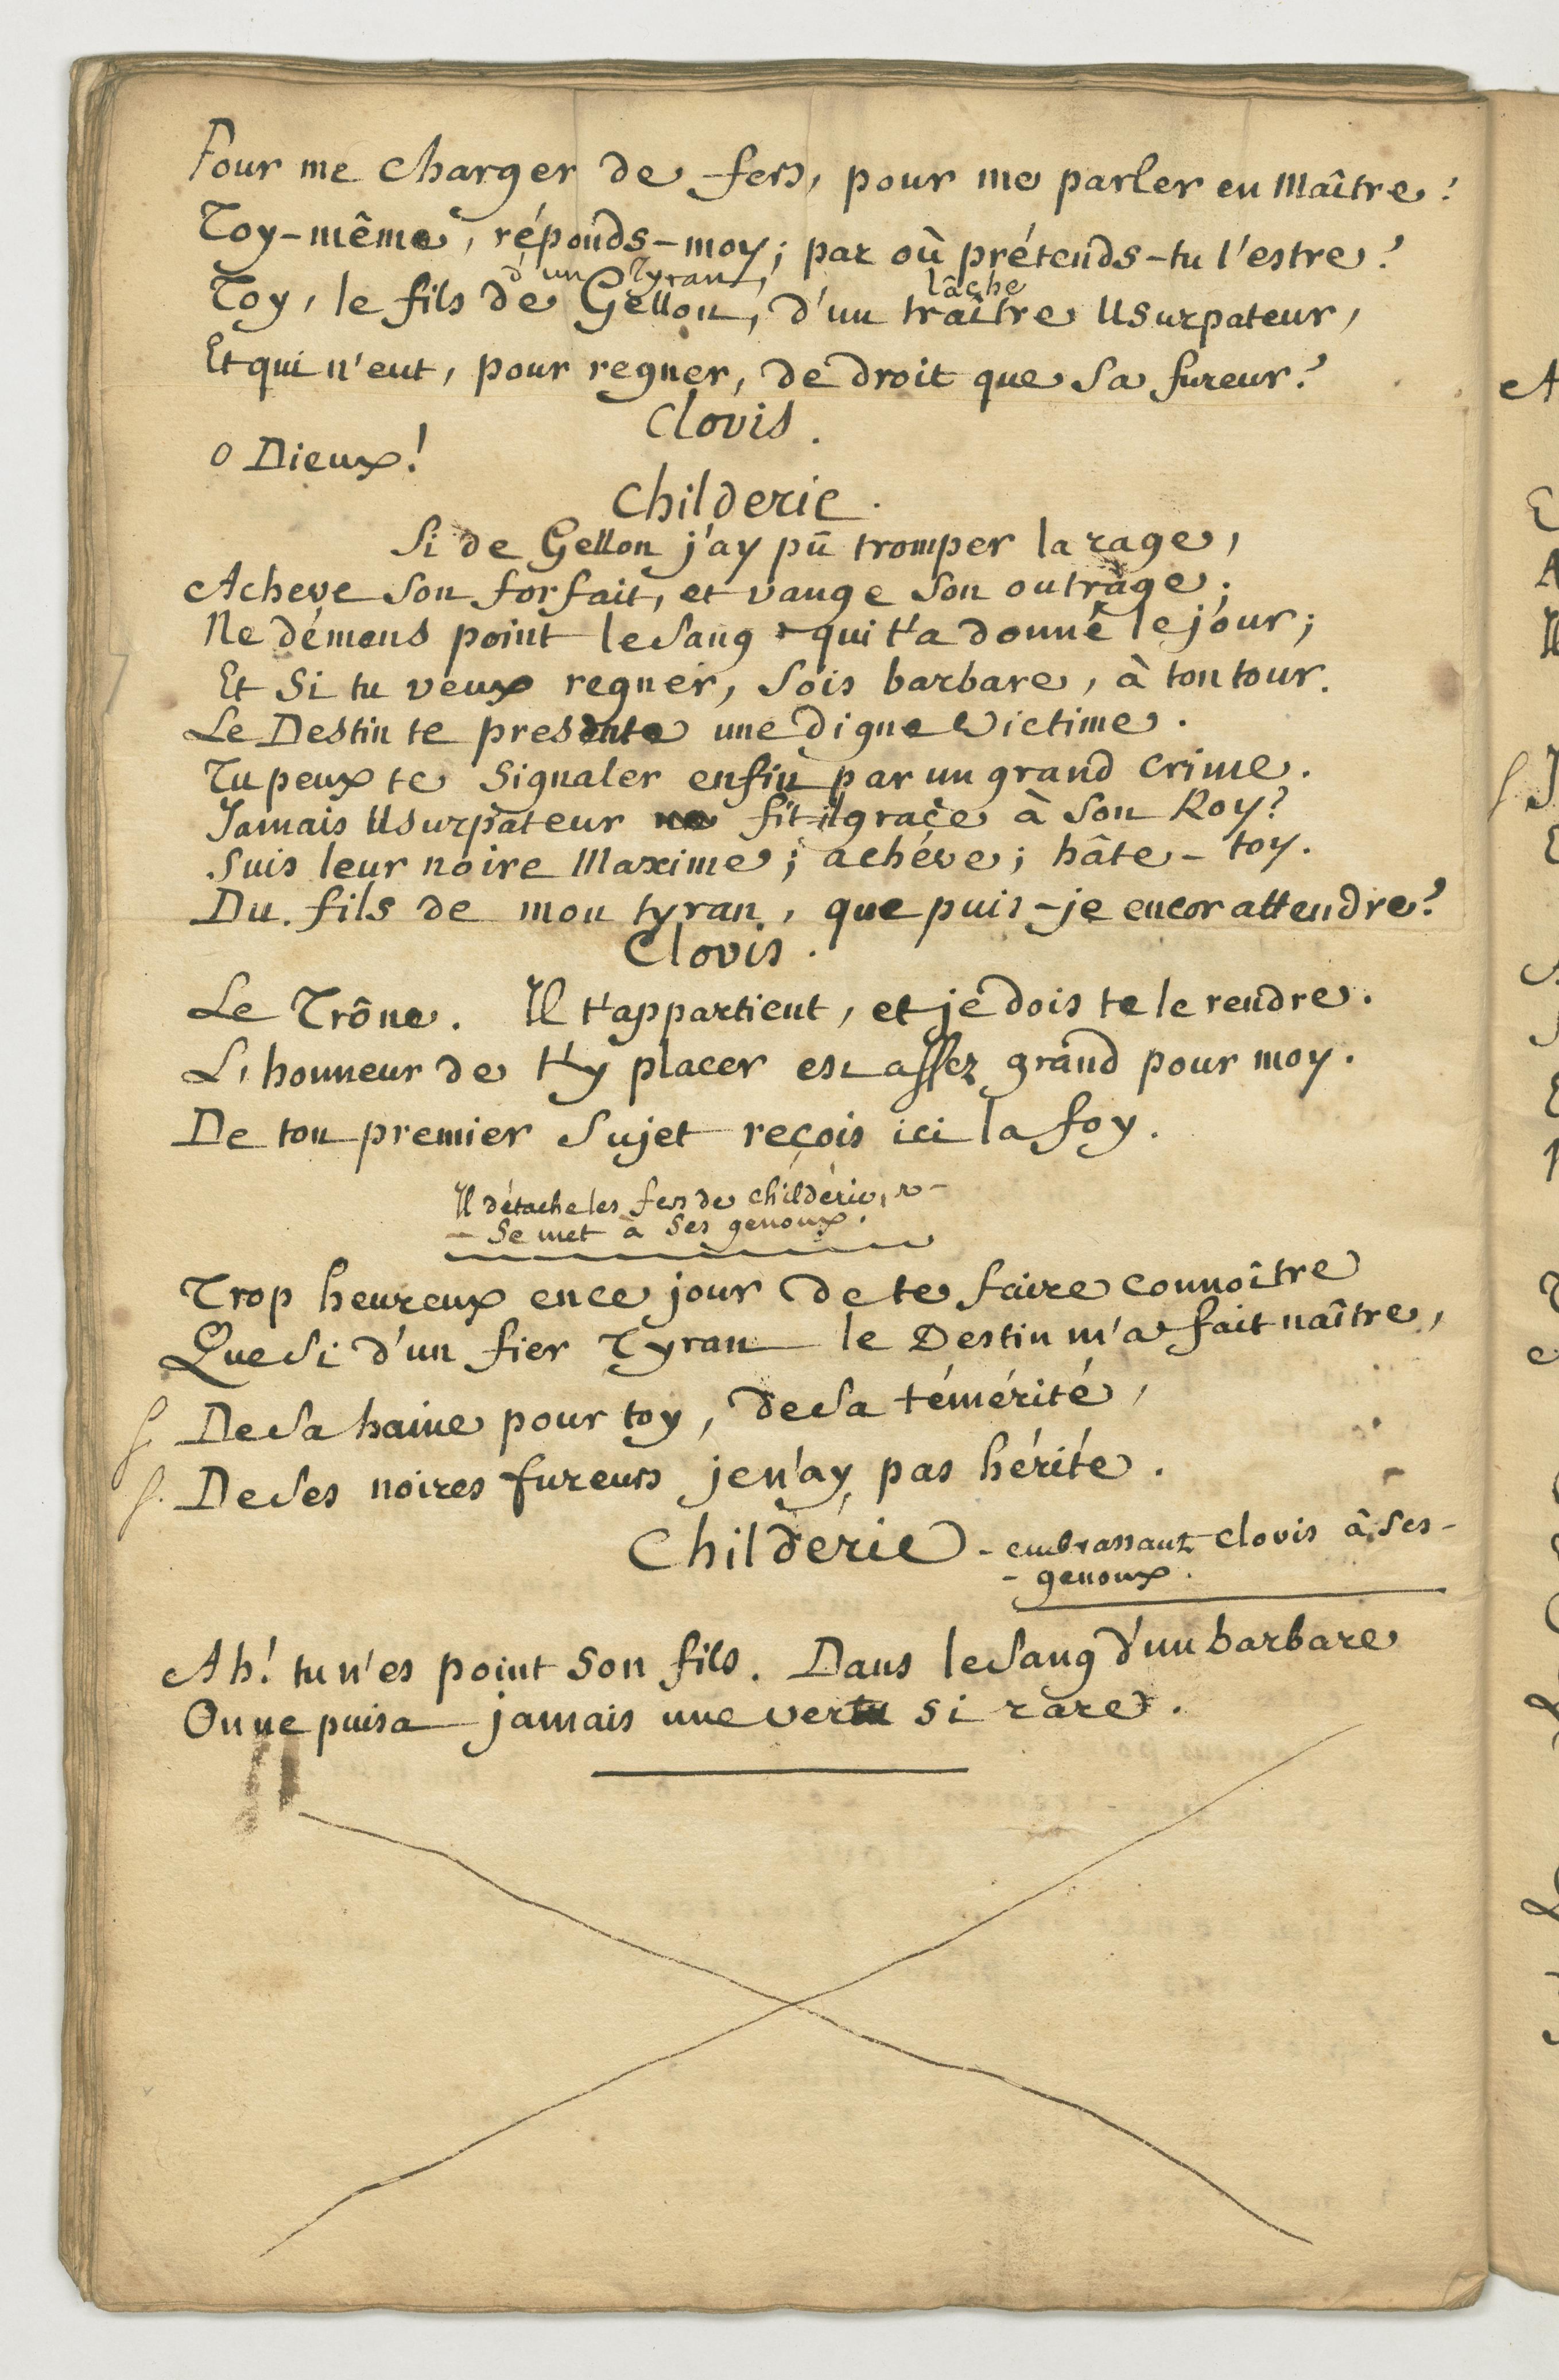 Pour me charger de fers, pour me parler en Maître?
Toy-même, réponds-moy; par où prétends-tu l'estre?
d'un Tyran, lâche
Toy, le fils de Gellon, d'un traître Usurpateur,
Et qui n'eut, pour regner, de droit que sa fureur?
Clovis.
O Dieux!
Childeric.
Si de Gellon j'ay pû tromper la rage,
Acheve son forfait, et vange son outrage;
Ne démens point le sang qui t'a donné le jour;
Et si tu veux regner, sois barbare, à ton tour.
Le Destin te presente une digne Victime.
Tu peux te signaler enfin par un grand crime.
Jamais Usurpateur fit-il grace à son Roy?
Suis leur noire Maxime; achéve; hâte-toy.
Du fils de mon tyran, que puis-je encor attendre?
Clovis.
Le Trône. Il t'appartient, et je dois te le rendre.
L'honneur de t'y placer est assez grand pour moy.
De ton premier Sujet reçois ici la foy.
Il détache les fers de Childéric, &-
- Se met à Ses genoux.
Trop heureux en ce jour de te faire connoître
Que si d'un fier Tyran le Destin m'a fait naître,
De sa haine pour toy, de sa témérité,
De ses noires fureurs je n'ay pas hérité.
Childéric - embrassant Clovis à ses-
- genoux.
Ah! tu n'es point son fils. Dans le sang d'un barbare
On ne puisa jamais une vertu si rare.